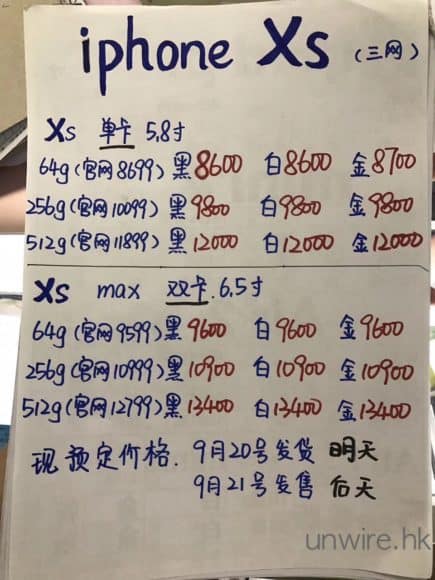 iphone Xs (三网)
Xs 单卡 5.8寸
64g(官网8699) 黑8600 白8600 金8700
256g(官网10099) 黑9800 白9800 金9800
512g(官网11899) 黑12000 白12000 金12000
Xs max 双卡.6.5寸
64g(官网9599) 黑9600 白9600 金9600
256g(官网10999) 黑10900 白10900 金10900
512g(官网12799) 黑13400 白13400 金13400
现 预定价格. 9月20号发货 明天
9月21号发售 后天
unwire.hk